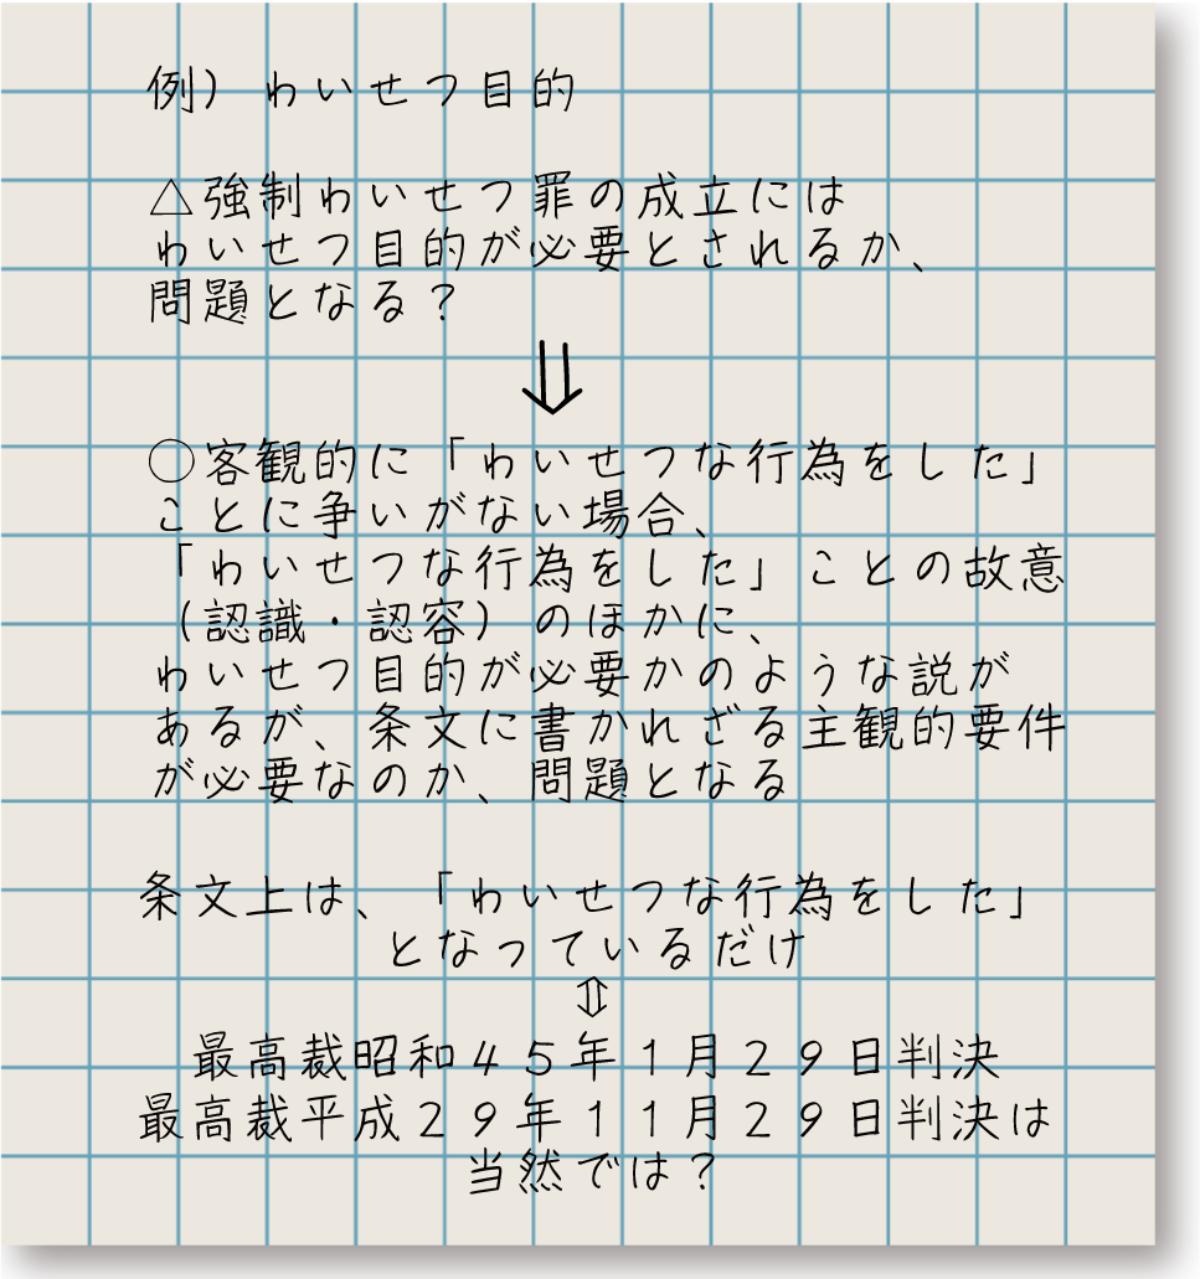 例）わいせつ目的
△強制わいせつ罪の成立には
わいせつ目的が必要とされるか、
問題となる？
⇓
○客観的に「わいせつな行為をした」
ことに争いがない場合、
「わいせつな行為をした」ことの故意
（認識・認容）のほかに、
わいせつ目的が必要かのような説が
あるが、条文に書かれざる主観的要件
が必要なのか、問題となる
条文上は、「わいせつな行為をした」
となっているだけ
⇕
最高裁昭和４５年１月２９日判決
最高裁平成２９年１１月２９日判決は
当然では？